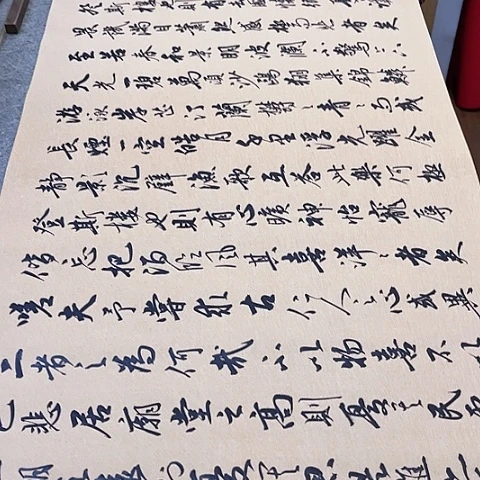 登斯樓也則有去國懷鄉憂讒
畏譏滿目蕭然感極而悲者矣
至若春和景明波瀾不驚上下
天光一碧萬頃沙鷗翔集錦鱗
游泳岸芷汀蘭鬱〻青〻而或
長煙一空皓月千里浮光躍金
靜影沉璧漁歌互答此樂何極
登斯樓也則有心曠神怡寵辱
偕忘把酒臨風其喜洋〻者矣
嗟夫予嘗求古仁人之心或異
二者之為何哉不以物喜不以
己悲居廟堂之高則憂其民